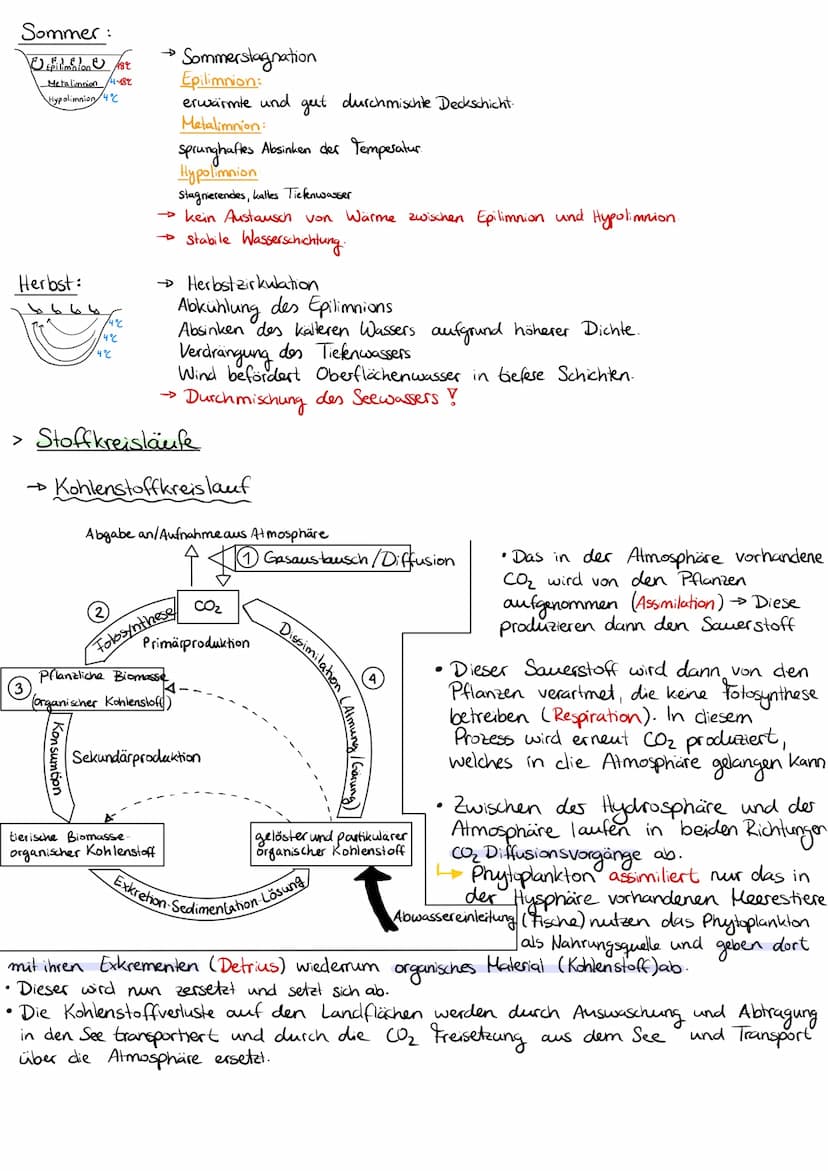 Sommer:
Epilimnion
18℃
Metalimnion
4-18℃
Hypolimnion
4℃
→ Sommerstagnation
Epilimnion:
erwärmte und gut durchmischte Deckschicht.
Metalimnion:
sprunghaftes Absinken der Temperatur
Hypolimnion
stagnierendes, kaltes Tiefenwasser
→ kein Austausch von Wärme zwischen Epilimnion und Hypolimnion
→ stabile Wasserschichtung.
Herbst:
4℃
4℃
4℃
→ Herbstzirkulation
Abkühlung des Epilimnions
Absinken des kälteren Wassers aufgrund höherer Dichte.
Verdrängung des Tiefenwassers
Wind befördert Oberflächenwasser in tiefere Schichten.
→ Durchmischung des Seewassers !
> Stoffkreisläufe
→ Kohlenstoffkreislauf
Abgabe an/Aufnahme aus Atmosphäre
① Gasaustausch/Diffusion
CO₂
②
Fotosynthese
Primärproduktion
③
Pflanzliche Biomasse
(organischer Kohlenstoff)
Konsumtion
Sekundärproduktion
tierische Biomasse-
organischer Kohlenstoff
Exkretion-Sedimentation-Lösung
gelöster und partikulärer
organischer Kohlenstoff
Dissimilation (Atmung/Gärung)
④
Abwassereinleitung
• Das in der Atmosphäre vorhandene
CO₂ wird von den Pflanzen
aufgenommen (Assmilation) → Diese
produzieren dann den Sauerstoff
• Dieser Sauerstoff wird dann von den
Pflanzen verartmet, die keine Fotosynthese
betreiben (Respiration). In diesem
Prozess wird erneut CO₂ produziert,
welches in die Atmosphäre gelangen kann
• Zwischen der Hydrosphäre und der
Atmosphäre laufen in beiden Richtungen
CO₂ Diffusionsvorgänge ab.
↳ Phytoplankton assimiliert nur das in
der Hysphäre vorhandenen Meerestiere
(Fische) nutzen das Phytoplankton
als Nahrungsquelle und geben dort
mit ihren Exkrementen (Detrius) wiederrum organisches Material (Kohlenstoff) ab.
• Dieser wird nun zersetzt und setzt sich ab.
• Die Kohlenstoffverluste auf den Landflächen werden durch Auswaschung und Abtragung
in den See transportiert und durch die CO₂ Freisetzung aus dem See und Transport
über die Atmosphäre ersetzt.